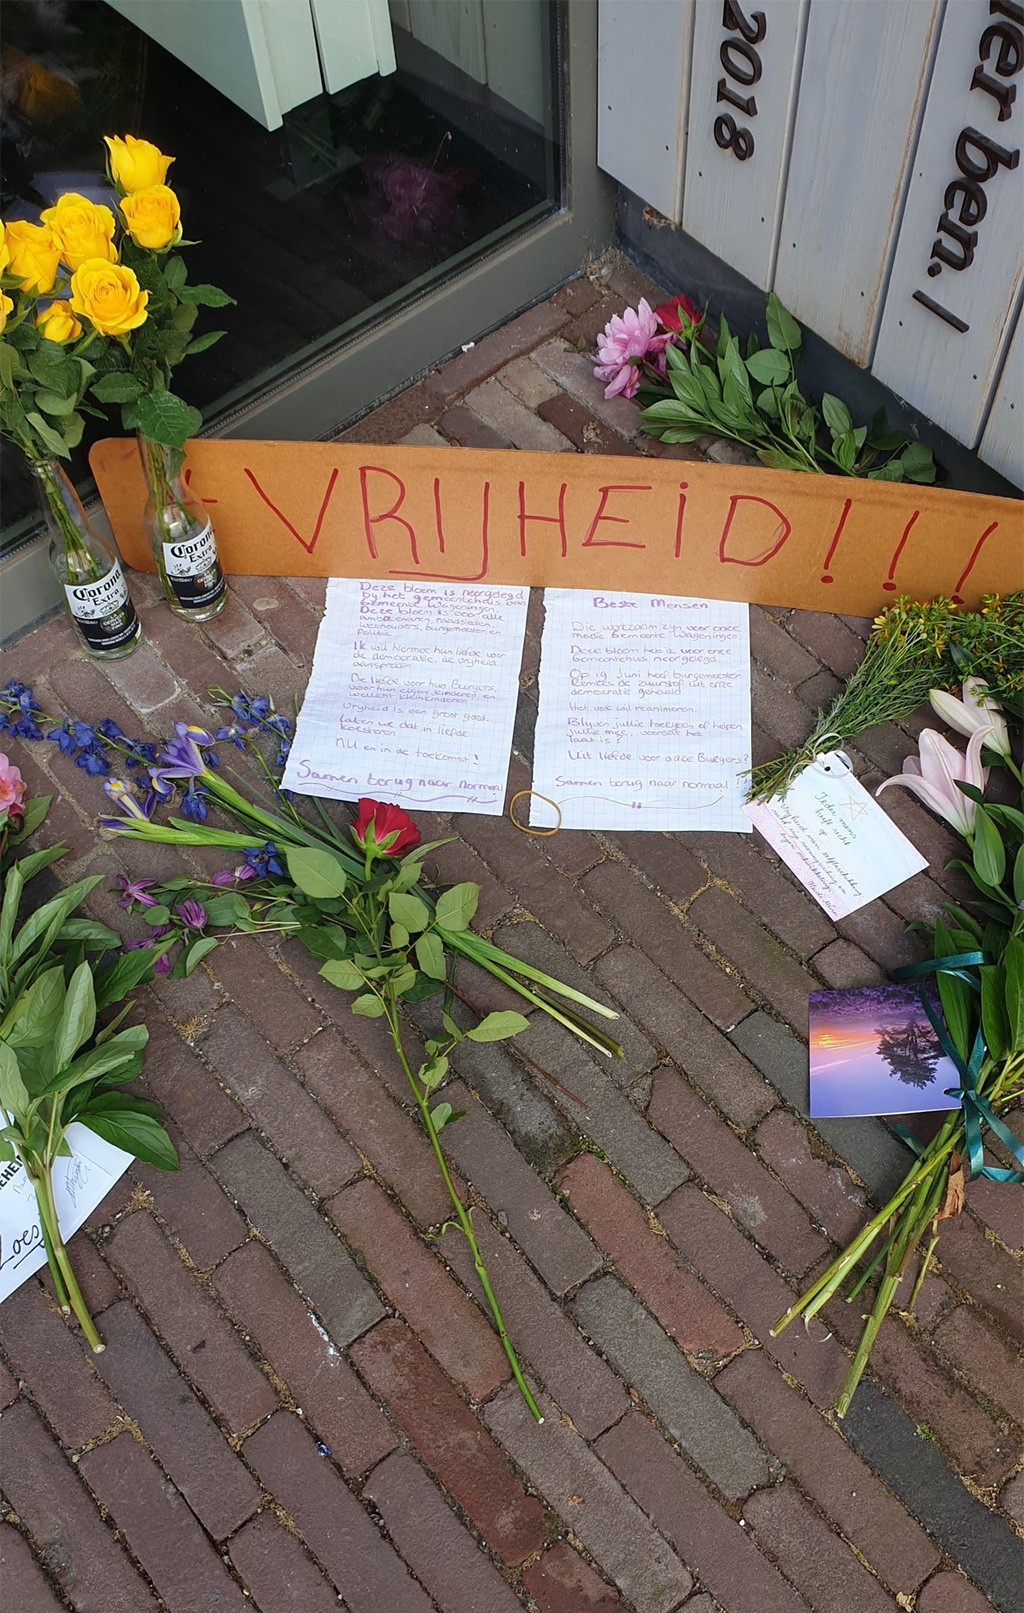 2018
ier ben. /
VRIJHEID!!!
Corona
Extra
Corona
Extra
Deze bloem is neergelegd
bij het gemeentehuis van
Gemeente Wageningen.
Deze bloem is voor alle
ambtenaren, raadsleden
wethouders, burgemeester en
Politie.
Ik wil hiermee hun liefde voor
de democratie, de vrijheid
aanspreken.
De liefde voor hun Burgers,
voor hun eigen kinderen en
wellicht kleinkinderen!
Vrijheid is een groot goed.
Laten we dat in liefde
koesteren.
NU en in de toekomst!
Samen terug naar normaal
Beste Mensen
Die werkzaam zijn voor onze
mooie Gemeente Wageningen.
Deze bloem heb ik voor onze
Gemeentehuis neergelegd.
Op 19 Juni heeft burgemeester
de zuurstof uit onze
democratie gehaald.
Het volk wil reanimeren.
Blijven jullie toekijken of helpen
jullie mee, voordat het
te laat is?
Uit liefde voor onze Burgers?
Samen terug naar normaal!
Ieder mens
heeft recht
op
Loes